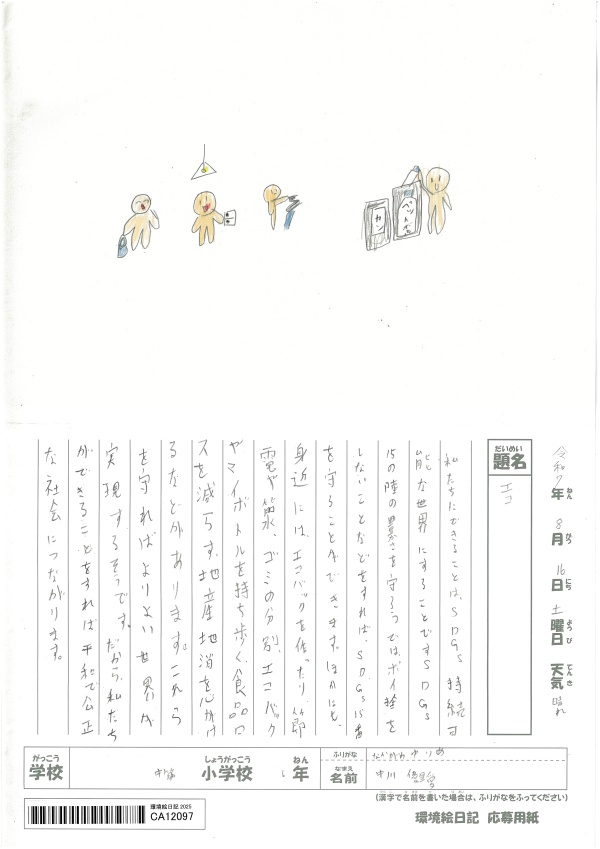 カン
ペットボトル
令和7年 8月 16日 土曜日 天気 晴れ
ねん がつ にち ようび てんき
だいめい
題名
エコ
私たちにできることは、SDGs 持続可
能な世界にすることですSDGs
15の陸の豊さを守ろうではポイ捨を
しないことなどをすれば、SDGs15番
を守ることができます。ほかにも、
身近には、エコバックを作ったり節
電や節水、ゴミの分別、エコバック
やマイボトルを持ち歩く、食品ロ
スを減らす、地産地消を心がけ
るなどがあります。これら
を守ればよりよい世界が
実現するそうです。だから、私たち
ができることをすれば平和で公正
な社会につながります。
がっこう
学校
しょうがっこう
小学校
ねん
年
ふりがな
なまえ
名前
中川
(漢字で名前を書いた場合は、ふりがなをふってください)
環境絵日記 2025
CA12097
環境絵日記 応募用紙